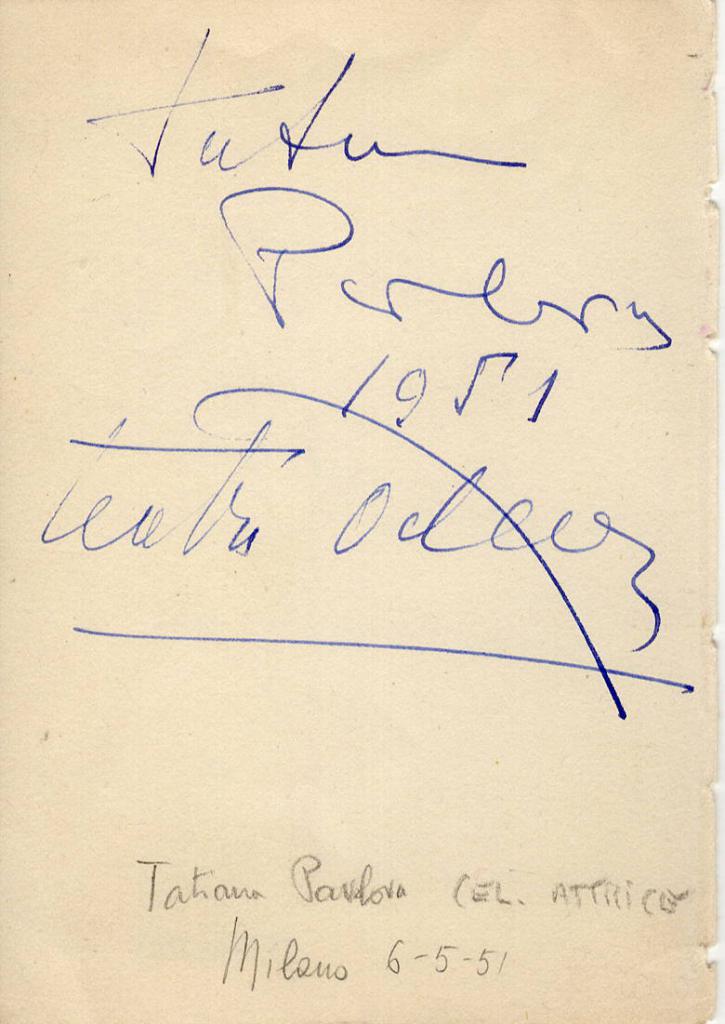 Tatiana
Pavlova
1951
Teatro Odeon
Tatiana Pavlova CEL. ATTRICE
Milano 6-5-51